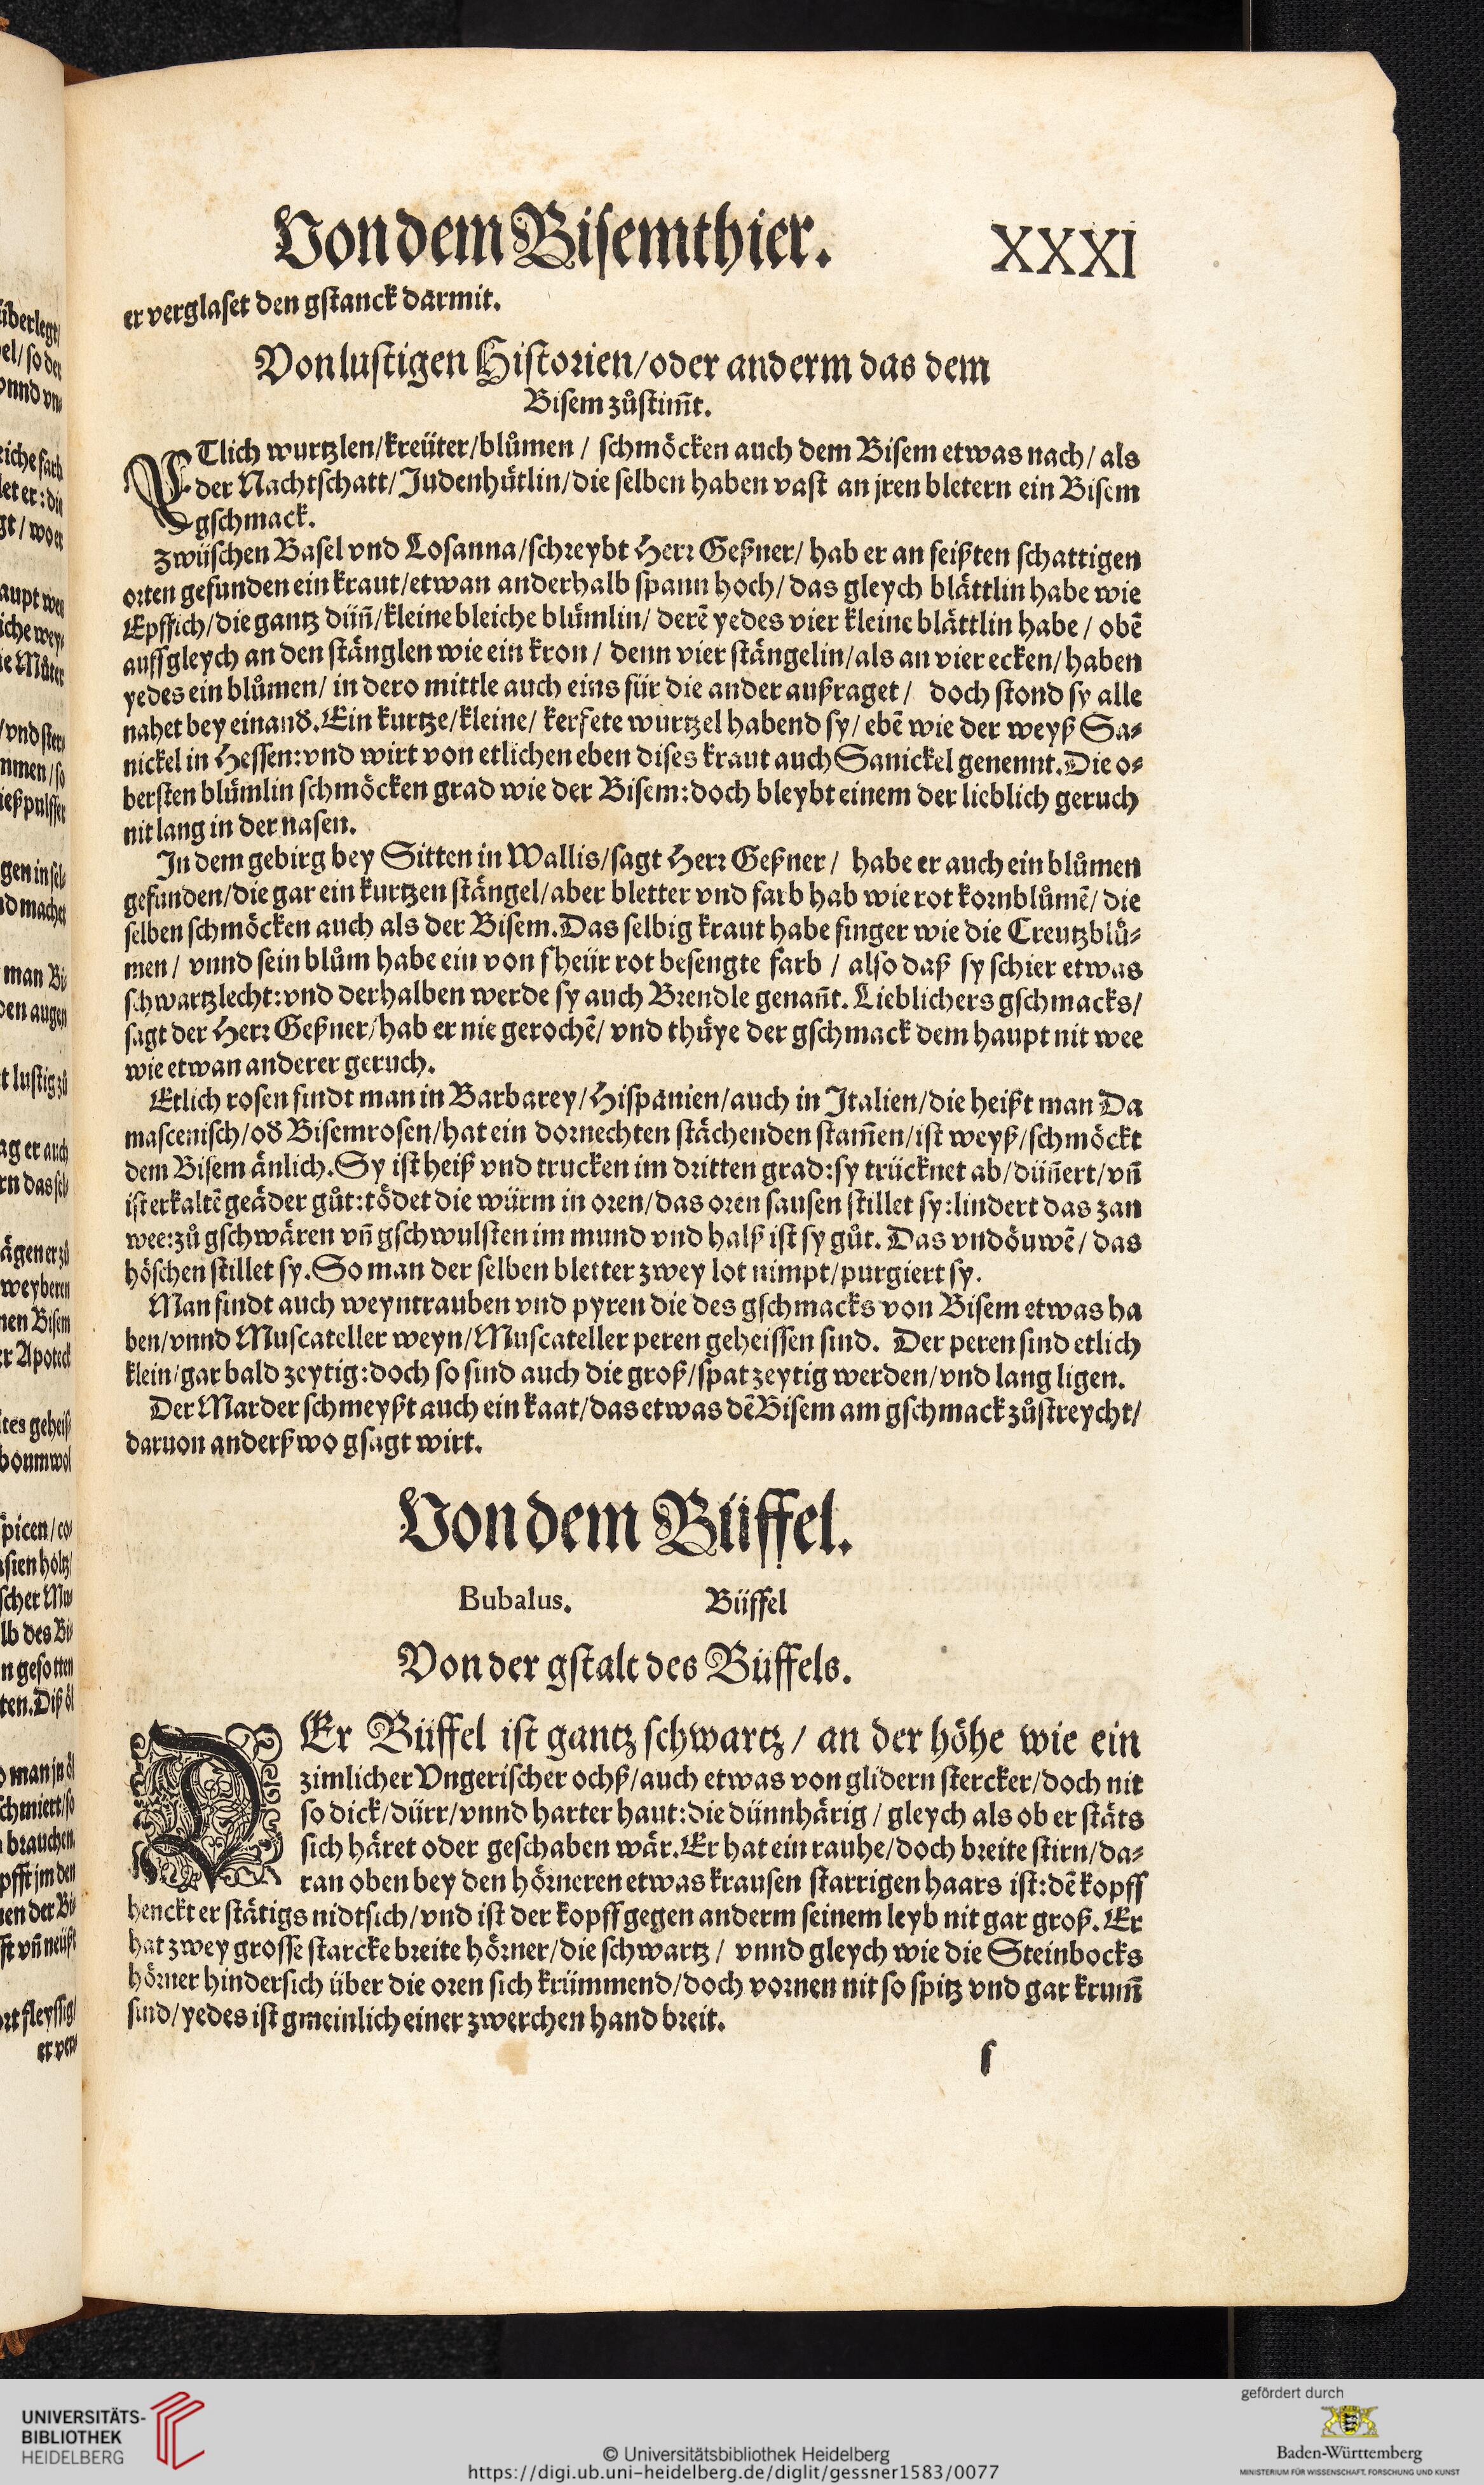 Von dem Bisemthier. XXXI
er verglaset den gstanck darmit.
Von lustigen Historien/ oder anderm das dem
Bisem zůstim̃t.
ETlich wurtzlen/ kreüter/ blůmen / schmöcken auch dem Bisem etwas nach/ als
der Nachtschatt/ Judenhütlin/ die selben haben vast an jren bletern ein Bisem
gschmack.
Zwüschen Basel vnd Losanna/ schreybt Herr Geßner/ hab er an feißten schattigen
orten gefunden ein kraut/ etwan anderhalb spann hoch/ das gleych blättlin habe wie
Epffich/ die gantz dün̄/ kleine bleiche blümlin/ derē yedes vier kleine blättlin habe / obē
auff gleych an den stänglen wie ein kron / denn vier stängelin/ als an vier ecken/ haben
yedes ein blůmen/ in dero mittle auch eins für die ander außraget / doch stond sy alle
nahet bey einand. Ein kurtze/ kleine/ kerfete wurtzel habend sy/ ebē wie der weyß Sa⸗
nickel in Hessen: vnd wirt von etlichen eben dises kraut auch Sanickel genennt. Die o⸗
bersten blümlin schmöcken grad wie der Bisem: doch bleybt einem der lieblich geruch
nit lang in der nasen.
In dem gebirg bey Sitten in Wallis/ sagt Herr Geßner / habe er auch ein blůmen
gefunden/ die gar ein kurtzen stängel/ aber bletter vnd farb hab wie rot kornblůmē/ die
selben schmöcken auch als der Bisem. Das selbig kraut habe finger wie die Creutzblů⸗
men / vnnd sein blům habe ein von fheür rot besengte farb / also daß sy schier etwas
schwartzlecht: vnd derhalben werde sy auch Brendle genañt. Lieblichers gschmacks/
sagt der Herr Geßner/ hab er nie gerochē/ vnd thüye der gschmack dem haupt nit wee
wie etwan anderer geruch.
Etlich rosen findt man in Barbarey/ Hispanien/ auch in Italien/ die heißt man Da
mascenisch/ od Bisemrosen/ hat ein dornechten stächenden stam̄en/ ist weyß/ schmöckt
dem Bisem änlich. Sy ist heiß vnd trucken im dritten grad: sy trücknet ab/ dün̄ert/ vn̄
ist erkaltē geäder gůt: tödet die würm in oren/ das oren sausen stillet sy: lindert das zan
wee: zů gschwären vn̄ gschwulsten im mund vnd halß ist sy gůt. Das vndöuwē/ das
höschen stillet sy. So man der selben bletter zwey lot nimpt/ purgiert sy.
Man findt auch weyntrauben vnd pyren die des gschmacks von Bisem etwas ha
ben/ vnnd Muscateller weyn/ Muscateller peren geheissen sind. Der peren sind etlich
klein/ gar bald zeytig: doch so sind auch die groß/ spat zeytig werden/ vnd lang ligen.
Der Marder schmeyßt auch ein kaat/ das etwas dē Bisem am gschmack zůstreycht/
daruon anderßwo gsagt wirt.
Von dem Büffel.
Bubalus. Büffel
Von der gstalt des Büffels.
DEr Büffel ist gantz schwartz / an der höhe wie ein
zimlicher Vngerischer ochß/ auch etwas von glidern stercker/ doch nit
so dick/ dürr/ vnnd harter haut: die dünnhärig / gleych als ob er stäts
sich häret oder geschaben wär. Er hat ein rauhe/ doch breite stirn/ da⸗
ran oben bey den hörneren etwas krausen starrigen haars ist: dē kopff
henckt er stätigs nidtsich/ vnd ist der kopff gegen anderm seinem leyb nit gar groß. Er
hat zwey grosse starcke breite hörner/ die schwartz / vnnd gleych wie die Steinbocks
hörner hindersich über die oren sich krümmend/ doch vornen nit so spitz vnd gar krum̄
sind/ yedes ist gmeinlich einer zwerchen hand breit.
f
UNIVERSITÄTS-
BIBLIOTHEK
HEIDELBERG
© Universitätsbibliothek Heidelberg
https://digi.ub.uni-heidelberg.de/diglit/gessner1583/0077
gefördert durch
Baden-Württemberg
MINISTERIUM FÜR WISSENSCHAFT, FORSCHUNG UND KUNST